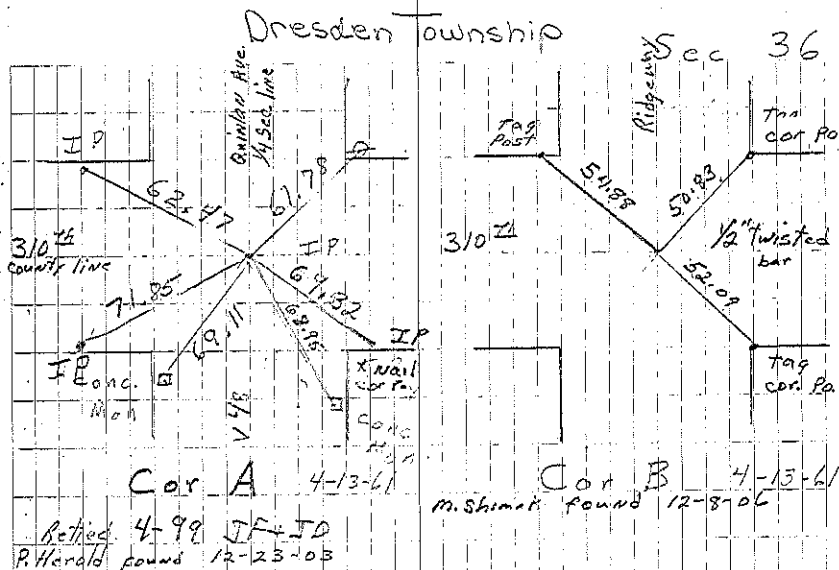 Dresden Township
Sec 36
Quinlan Ave.
1/4 Sec line
IP
62.47
61.78
IP
310th
county line
71.85
69.11
68.95
64.32
IP
IP
Conc.
Mon
V 48
X Nail
cor Po
Conc
Mon
Cor A 4-13-61
Retied 4-99 JF+JD
P. Herald found 12-23-03
Ridgeway
Tag
Post
cor Po.
54.88
50.83
310th
1/2" twisted
bar
52.09
Tag
cor. Po.
Cor B 4-13-61
found 12-8-06